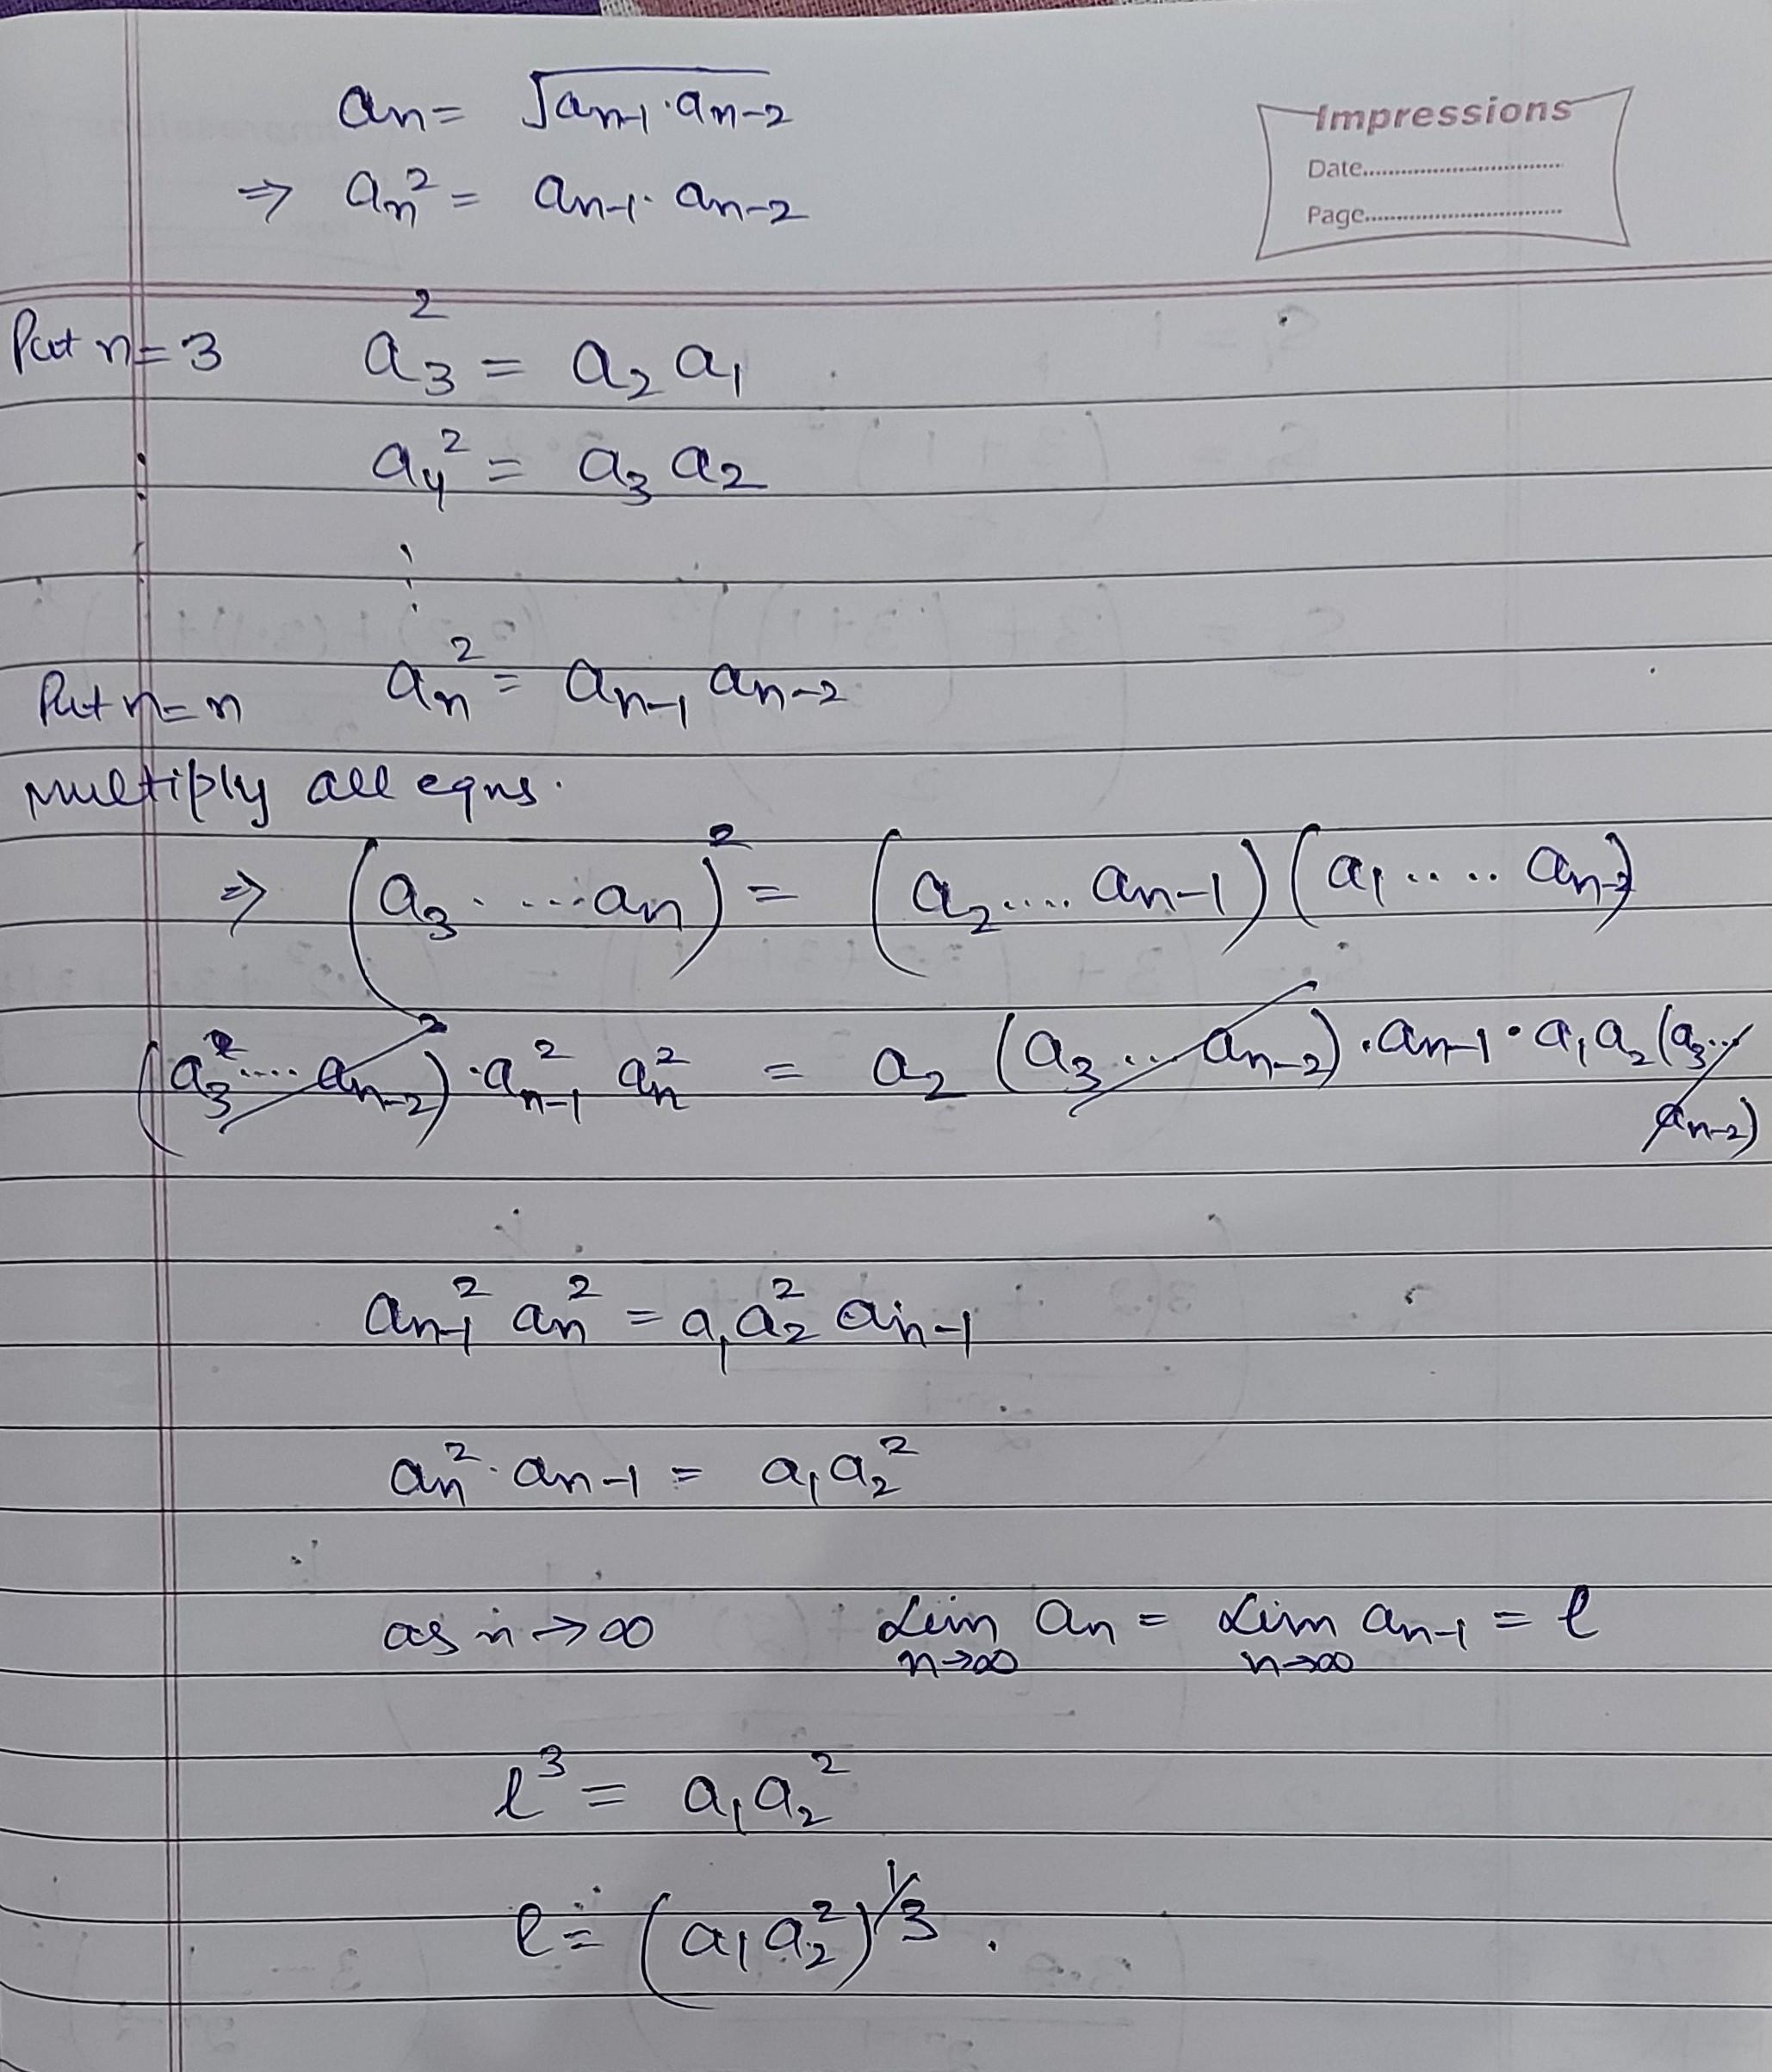 aₙ = √aₙ₋₁·aₙ₋₂
Impressions
Date..............................
⇒ aₙ² = aₙ₋₁· aₙ₋₂
Page..............................
Put n=3 a₃² = a₂ a₁
a₄² = a₃ a₂
⋮
Put n=n aₙ² = aₙ₋₁ aₙ₋₂
Multiply all eqns.
⇒ (a₃ ..... aₙ)² = (a₂ .... aₙ₋₁) (a₁ ..... aₙ₋₂)
(a₃² .... aₙ₋₂²) · aₙ₋₁² aₙ² = a₂ (a₃ ... aₙ₋₂) · aₙ₋₁ · a₁ a₂ (a₃ ...
aₙ₋₂)
aₙ₋₁² aₙ² = a₁ a₂² aₙ₋₁
aₙ² · aₙ₋₁ = a₁ a₂²
as n → ∞ Lim n→∞ aₙ = Lim n→∞ aₙ₋₁ = l
l³ = a₁ a₂²
l = (a₁ a₂²)^1/3 .